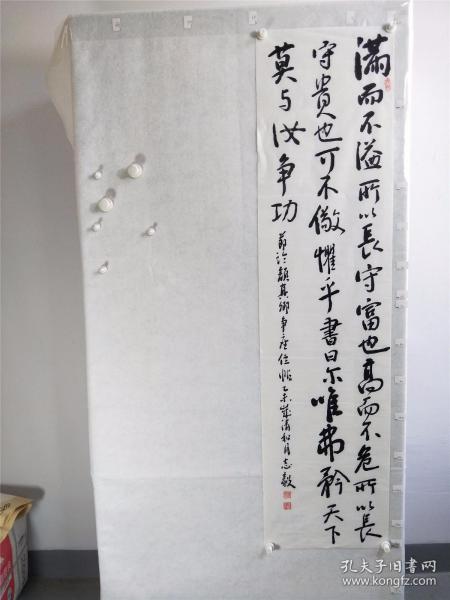 满而不溢所以長守富也高而不危所以長
守貴也可不儆懼乎書曰尔唯弗矜天下
莫与汝争功
節臨顔真卿争座位帖乙未歲清和月志毅
孔夫子旧书网
www.kongfz.com